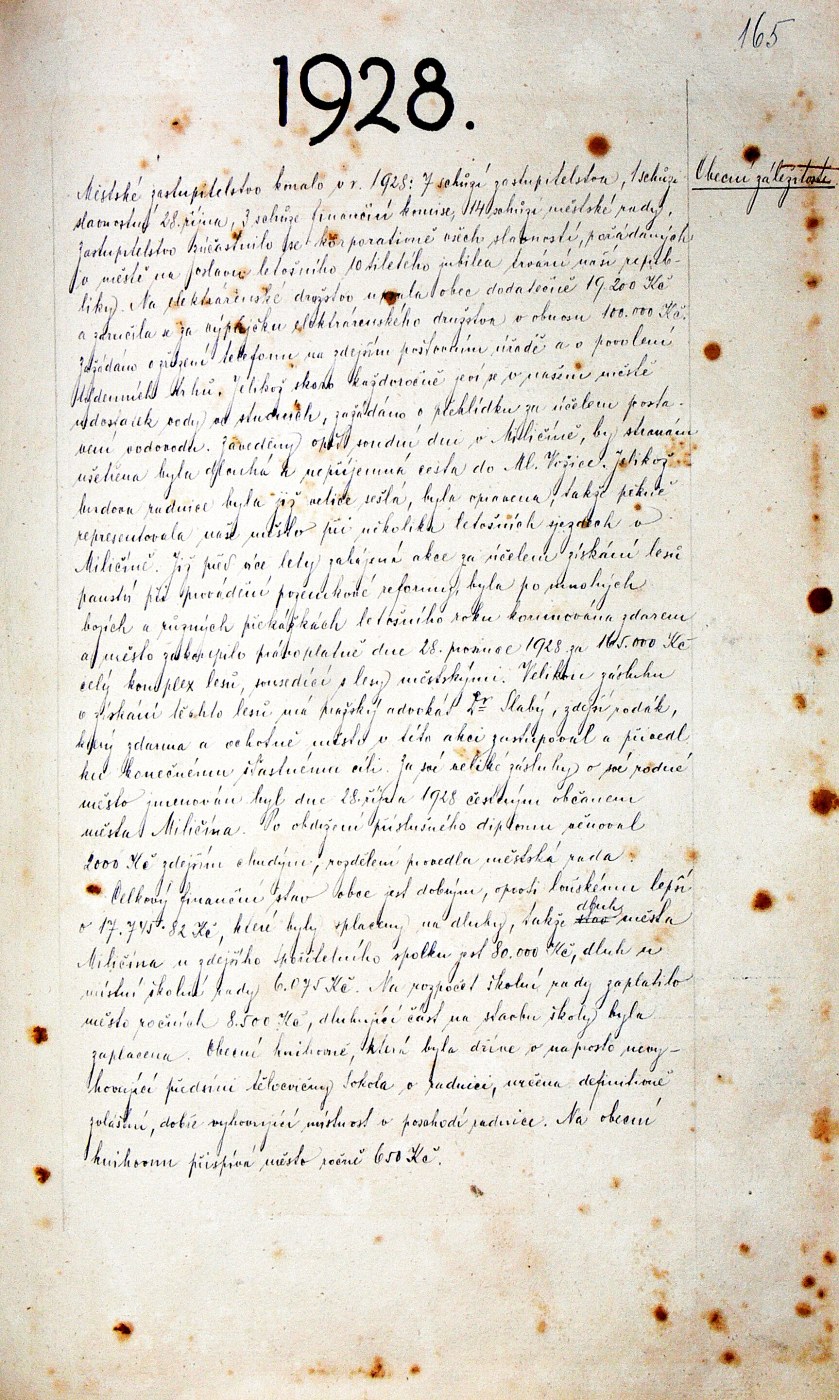 165
1928.
Obecní záležitosti
Městské zastupitelstvo konalo v r. 1928: 7 schůzí zastupitelstva, 1 schůzi
slavnostní 28. října, 3 schůze finanční komise, 14 schůzí městské rady.
Zastupitelstvo súčastnilo se korporativně všech slavností, pořádaných
v městě na oslavu letošního 10tiletého jubilea trvání naší repub-
liky. Na elektrárenské družstvo upsala obec dodatečně 19.200 Kč
a zaručila se za výpůjčku elektrárenského družstva v obnosu 100.000 Kč.
Zažádáno o zřízení telefonu na zdejším poštovním úřadě a o povolení
týdenních trhů. Jelikož skoro každoročně jeví se v našem městě
nedostatek vody ve studních, zažádáno o přehlídku za účelem posta-
vení vodovodu. Zavedeny opět soudní dni v Miličíně, by stranám
ušetřena byla dlouhá a nepříjemná cesta do Ml. Vožice. Jelikož
budova radnice byla již velice sešlá, byla opravena, takže pěkně
representovala naše město při několika letošních sjezdech v
Miličíně. Již před více lety zahájená akce za účelem získání lesů
panství při provádění pozemkové reformy, byla po mnohých
bojích a různých překážkách letošního roku korunována zdarem
a město zakoupilo právoplatně dne 28. prosince 1928 za 165.000 Kč
celý komplex lesů, sousedící s lesy městskými. Velikou zásluhu
o získání těchto lesů má pražský advokát Dr Slabý, zdejší rodák,
který zdarma a ochotně město v této akci zastupoval a přivedl
ku konečnému šťastnému cíli. Za své veliké zásluhy o své rodné
město jmenován byl dne 28. října 1928 čestným občanem
města Miličína. Po obdržení příslušného diplomu věnoval
2000 Kč zdejším chudým, rozdělení provedla městská rada.
Celkový finanční stav obce jest dobrým, oproti loňskému lepší
o 17.745.82 Kč, které byly splaceny na dluhy, takže stav dluh města
Miličína u zdejšího spořitelního spolku jest 80.000 Kč, dluh u
místní školní rady 6.075 Kč. Na rozpočet školní rady zaplatilo
město ročních 8.500 Kč, dluhující část na stavbu školy byla
zaplacena. Obecní knihovně, která byla dříve v naprosto nevy-
hovující předsíni tělocvičny Sokola v radnici, určena definitivně
zvláštní, dobře vyhovující místnost v poschodí radnice. Na obecní
knihovnu přispívá město ročně 650 Kč.